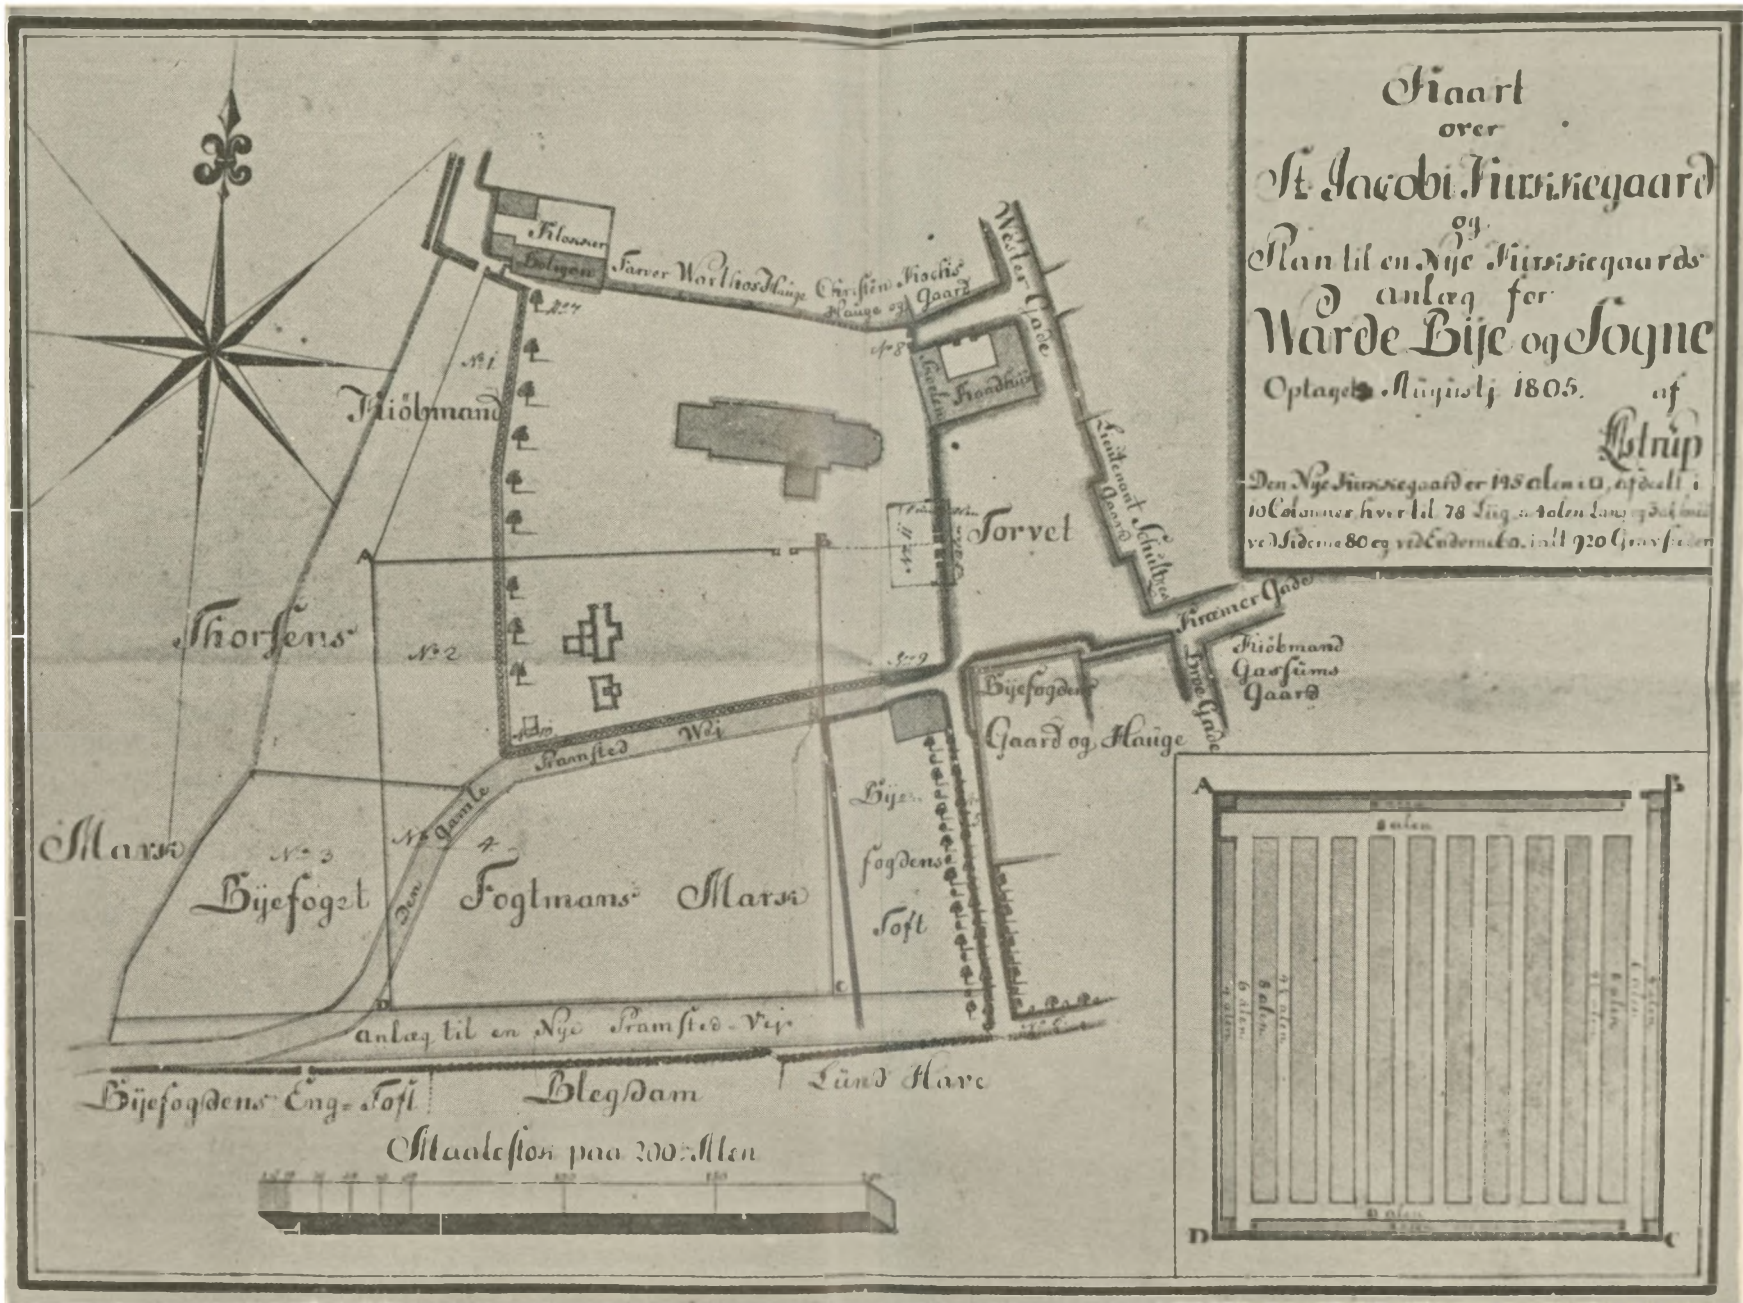 Kaart
over
St. Jacobi Kirkkegaard
og
Plan til en Nye Kirkkegaards
anlæg for
Warde Bije og Sogne
Optaget Augustj 1805. af
Østrup
Den Nye Kirkkegaard er 195 alen i □, afdeelt i
10 Colonner, hver til 78 Liig
ved Siderne 80 og ved Enderne ialt 920
Klokker
Boligen
Farver Warthos Hauge
Christen Kochs
Hauge og Gaard
Wester Gade
No 7
No 8
No 1
Kiöbmand
Raadhus
Lieutenant Schultzes
Gaard
No 11
Torvet
A
B
Thorsens
No 2
No 9
Kræmer Gade
Kiöbmand
Gassums
Gaard
Broe Gade
Bijefogdens
Gaard og Hauge
No 10
Den Gamle Pramsted Wej
Mark
No 3
No 4
Bijefoget
Fogtmans Mark
Bije
fogdens
Toft
D
C
Anlæg til en Nye Pramsted-Vej
Bijefogdens Eng=Toft
Blegdam
Lund Have
Maalestok paa 200 Alen
A
B
8 alen
4 alen
6 alen
8 alen
8 alen
6 alen
4 alen
8 alen
D
C